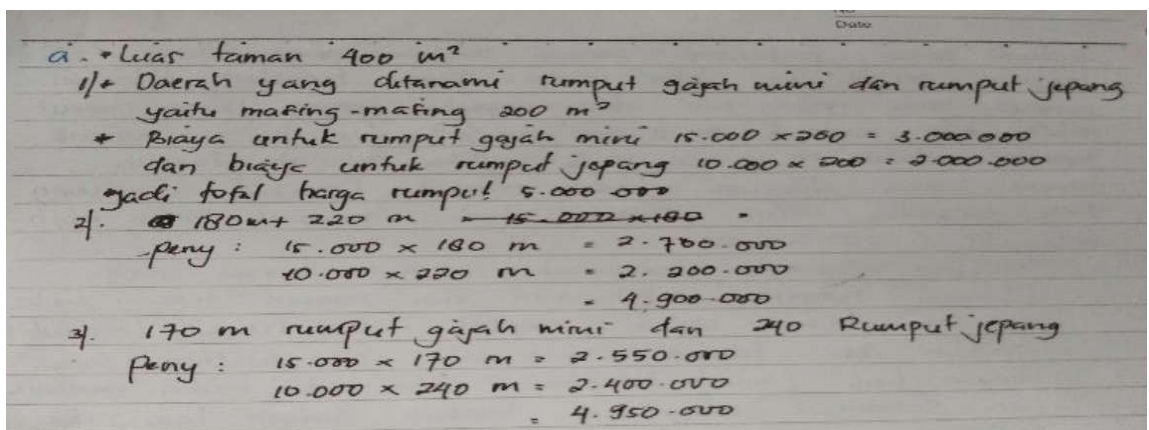 Date
a. • Luas taman 400 m²
1/• Daerah yang ditanami rumput gajah mini dan rumput jepang
yaitu masing-masing 200 m²
• Biaya untuk rumput gajah mini 15.000 × 200 = 3.000 000
dan biaya untuk rumput jepang 10.000 × 200 = 2.000.000
Jadi total harga rumput 5.000 000
2/. 180m + 220 m = 15.000 × 180 =
-peny : 15.000 × 180 m = 2.700.000
10.000 × 220 m = 2.200.000
= 4.900.000
3/. 170 m rumput gajah mini dan 240 Rumput jepang
peny : 15.000 × 170 m = 2.550.000
10.000 × 240 m = 2.400.000
= 4.950.000